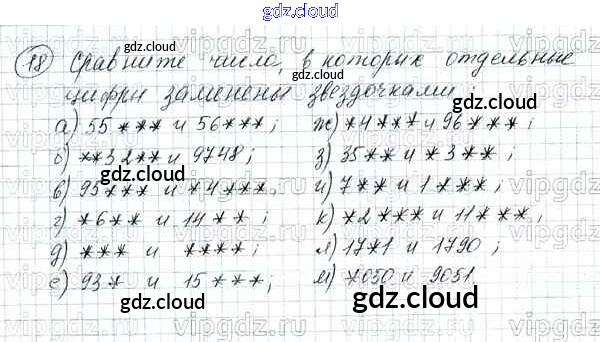 gdz.cloud
18) Сравните числа, в которых отдельные
цифры заменены звездочками:
а) 55*** и 56***;
б) **32** и 9748;
в) 95*** и *4***;
г) *6** и 14**;
д) *** и ****;
е) 93* и 15***;
ж) *4*** и 96***;
з) 35** и *3**;
и) 7** и 1***;
к) *2*** и 11***;
л) 17*1 и 1790;
м) *050 и 9051.
gdz.cloud
gdz.cloud
gdz.cloud
gdz.cloud
gdz.cloud
gdz.cloud
gdz.cloud